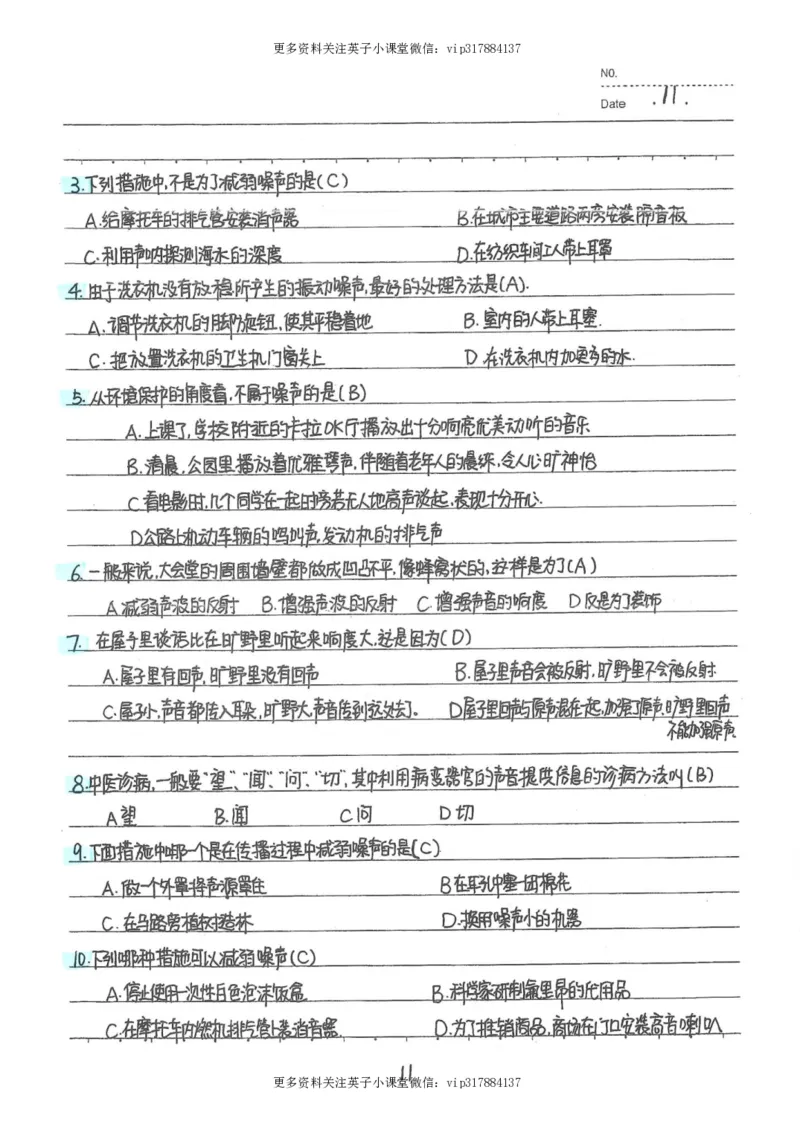 更多资料关注英子小课堂微信：vip317884137
NO.
Date .11.
3.下列措施中,不是为了减弱噪声的是(C)
A.给摩托车的排气管安装消声器 B.在城市主要道路两旁安装隔音板
C.利用声呐探测海水的深度 D.在纺织车间工人带上耳罩
4.由于洗衣机没有放稳所产生的振动噪声,最好的处理方法是(A).
A.调节洗衣机的脚防旋钮,使其平稳着地 B.室内的人带上耳塞.
C.把放置洗衣机的卫生机门窗关上 D.在洗衣机内加更多的水.
5.从环境保护的角度看,不属于噪声的是(B)
A.上课了,学校附近的卡拉OK厅播放出十分响亮优美动听的音乐
B.清晨,公园里播放着优雅琴声,伴随着老年人的晨练,令人心旷神怡
C看电影时,几个同学在一起旁若无人地高声谈起,表现十分开心.
D公路上机动车辆的鸣叫声,发动机的排气声
6.一般来说,大会堂的周围墙壁都做成凹凸不平,像蜂窝状的,这样是为了(A)
A减弱声波的反射 B.增强声波的反射 C.增强声音的响度 D仅是为了装饰
7. 在屋子里谈话比在旷野里听起来响度大,这是因为(D)
A.屋子里有回声,旷野里没有回声 B.屋子里声音会被反射,旷野里不会被反射
C.屋子小,声音都传入耳朵,旷野大,声音传到远处去了. D屋子里回声与原声混在一起,加强了原声,旷野里回声
不能加强原声.
8.中医诊病,一般要“望”、“闻”、“问”、“切”,其中利用病变器官的声音提供信息的诊病方法叫(B)
A望 B.闻 C问 D切
9.下面措施中哪一个是在传播过程中减弱噪声的是(C)
A.做一个外罩将声源罩住 B在耳孔中塞一团棉花
C.在马路旁植树造林 D.换用噪声小的机器
10.下列哪种措施可以减弱噪声(C)
A.停止使用一次性白色泡沫饭盒 B.科学家研制氟里昂的代用品
C.在摩托车内燃机排气管上装消音器. D.为了推销商品,商场在门口安装高音喇叭
11
更多资料关注英子小课堂微信：vip317884137